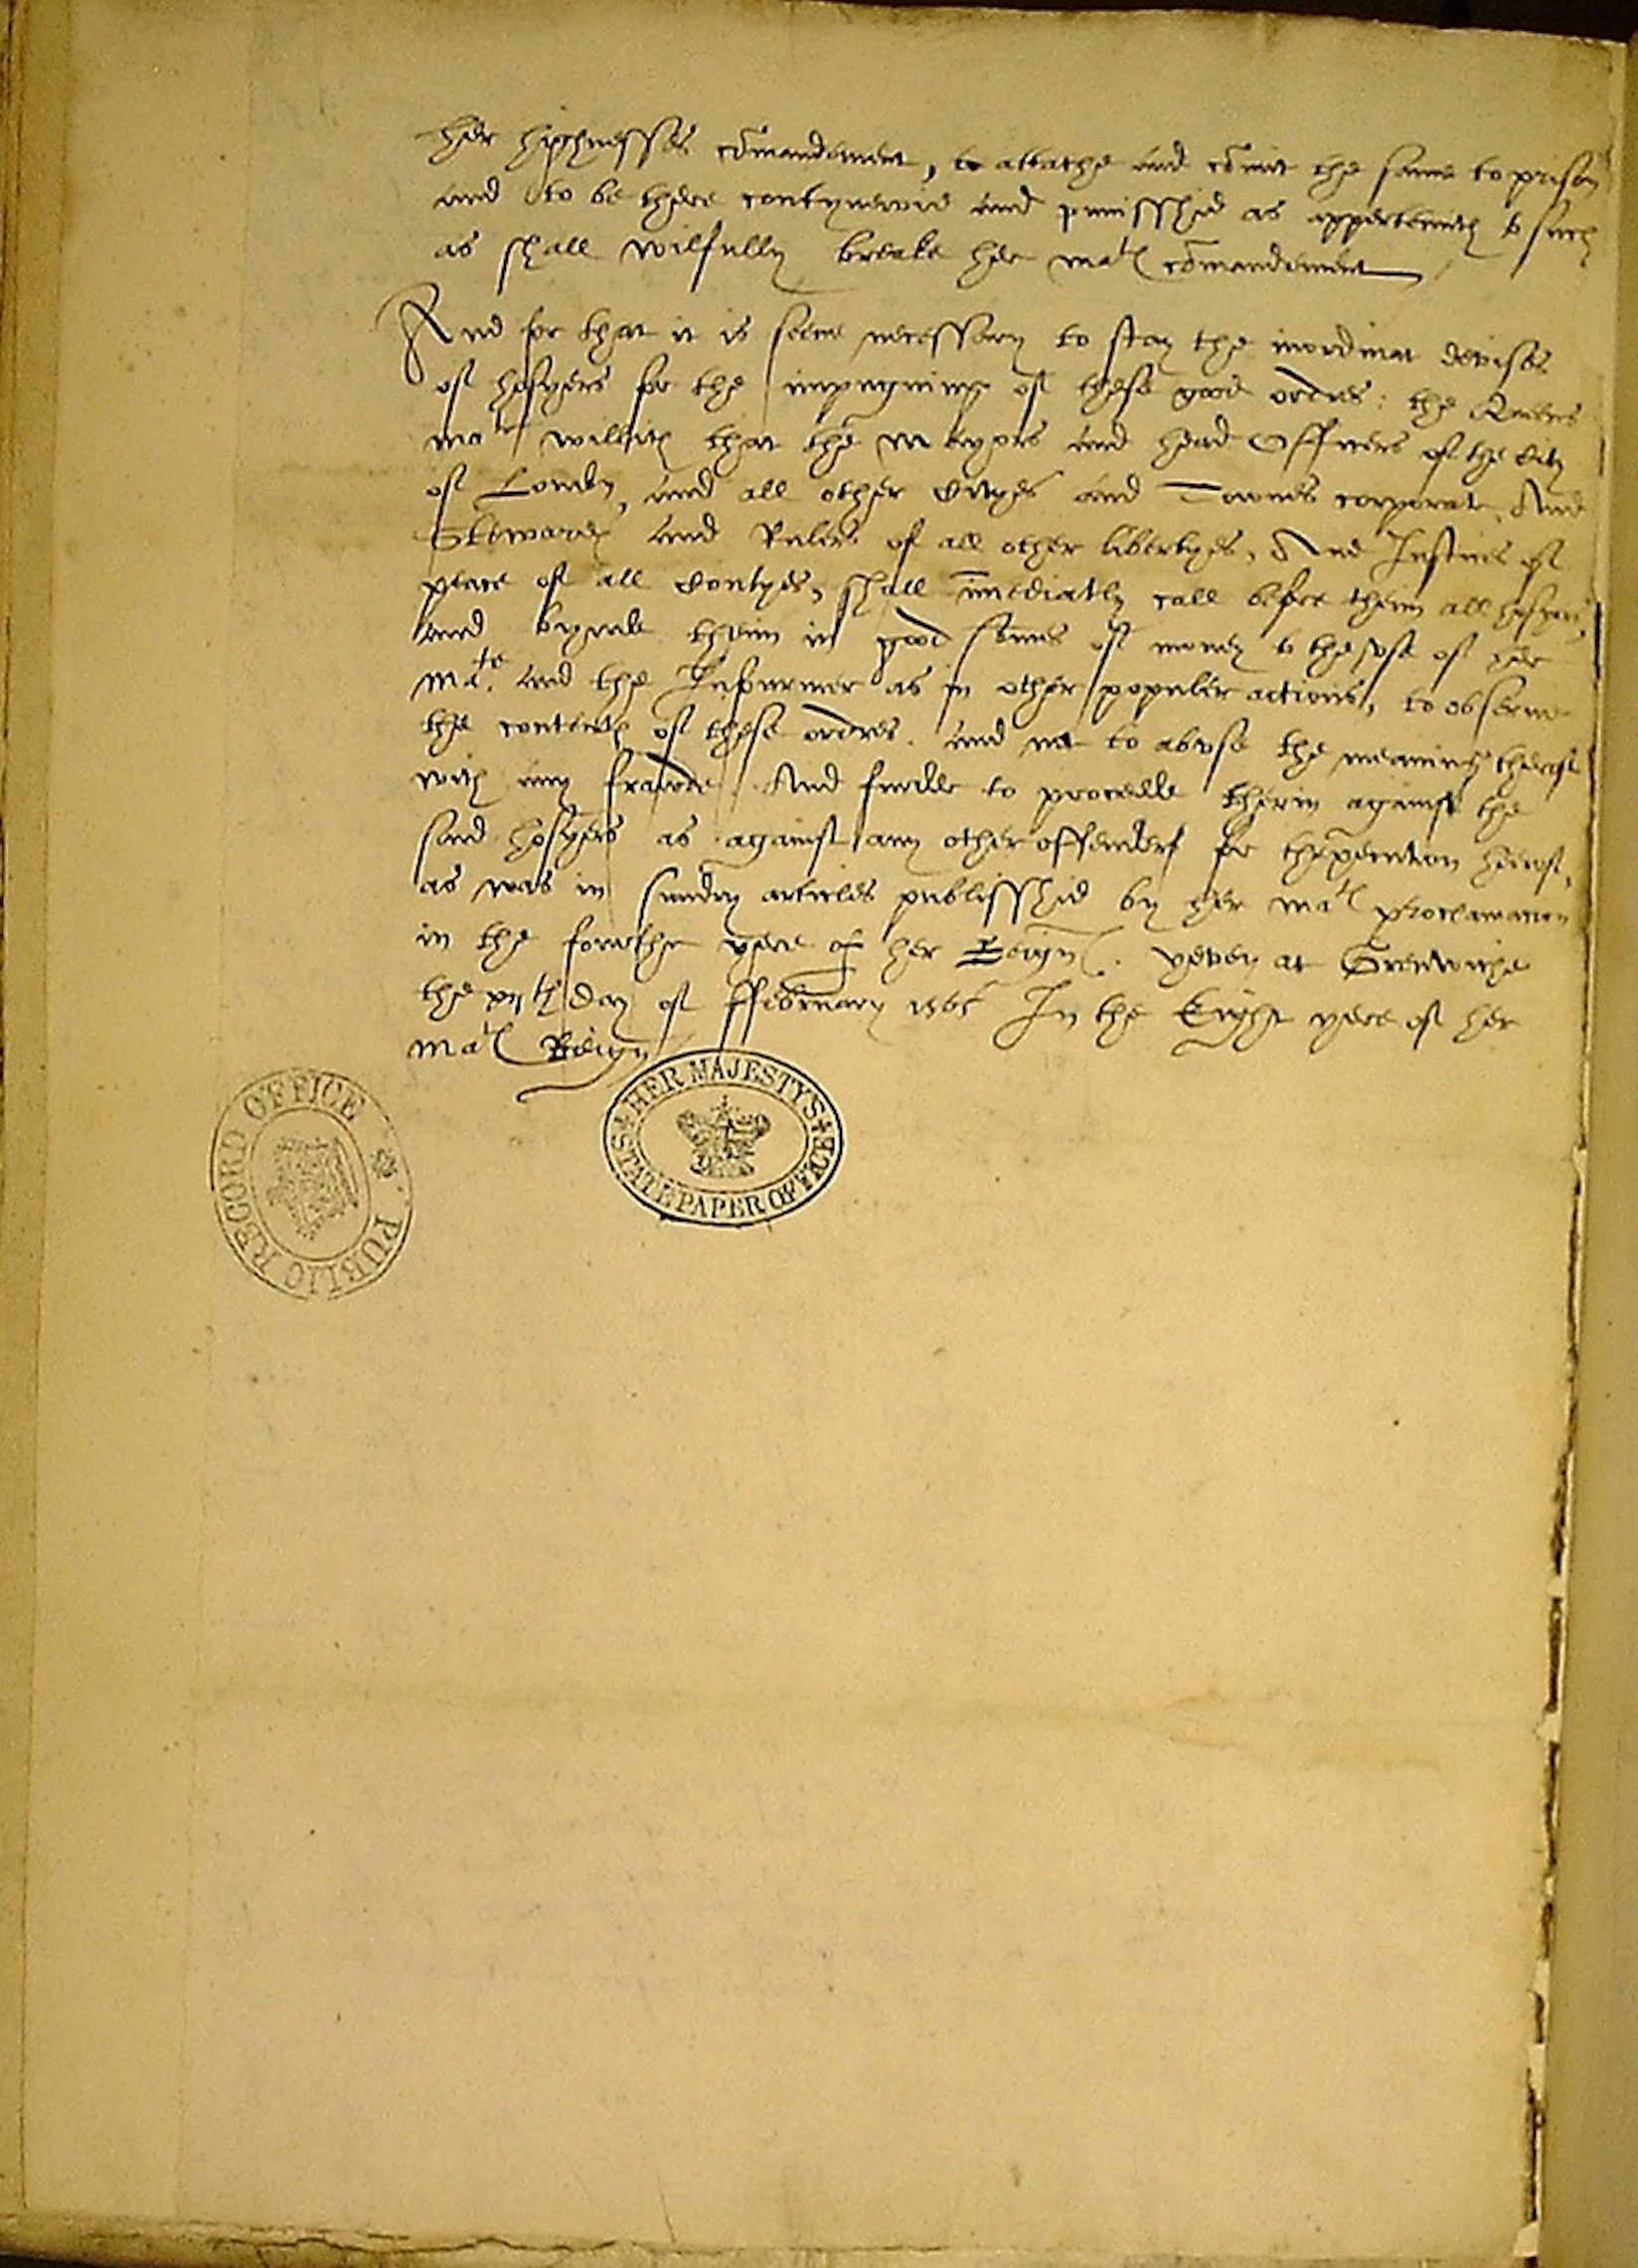 her highnesses com̄andement, to attache and com̄it the same to prison
and to be there contynewid and punisshid as apperteineth to such
as shall wilfully breake her matˢ com̄andement
And for that it is seene necessary to stay the inordinat devises
of hosyers for the impugning of these good ordres: the Quenes
maᵗⁱᵉ willith that the Mayors and head Officers of the City
of London, and all other Cityes and Townes corporate, And
Stewardes and Rulers of all other libertyes, And Justices of
peace of all Contyes, shall im̄ediatly call before theim all hosyers,
and bynde theim in good som̄es of money to the use of her
Maᵗⁱᵉ. and the Infourmer as in other populer actions, to observe
the contentes of these ordres. and not to abuse the meaning therof
with any fraude. And furder to procede therin against the
said hosyers as against any other offenders for thexecution herof,
as was in sundry articles publisshid by her matˢ proclamation
in the fourthe yere of her Reign. Yeven at Grenwiche
the xijᵗʰ day of ffebruary 1565 In the Eight yere of her
Matˢ Reign
HER MAJESTY'S STATE PAPER OFFICE
PUBLIC RECORD OFFICE